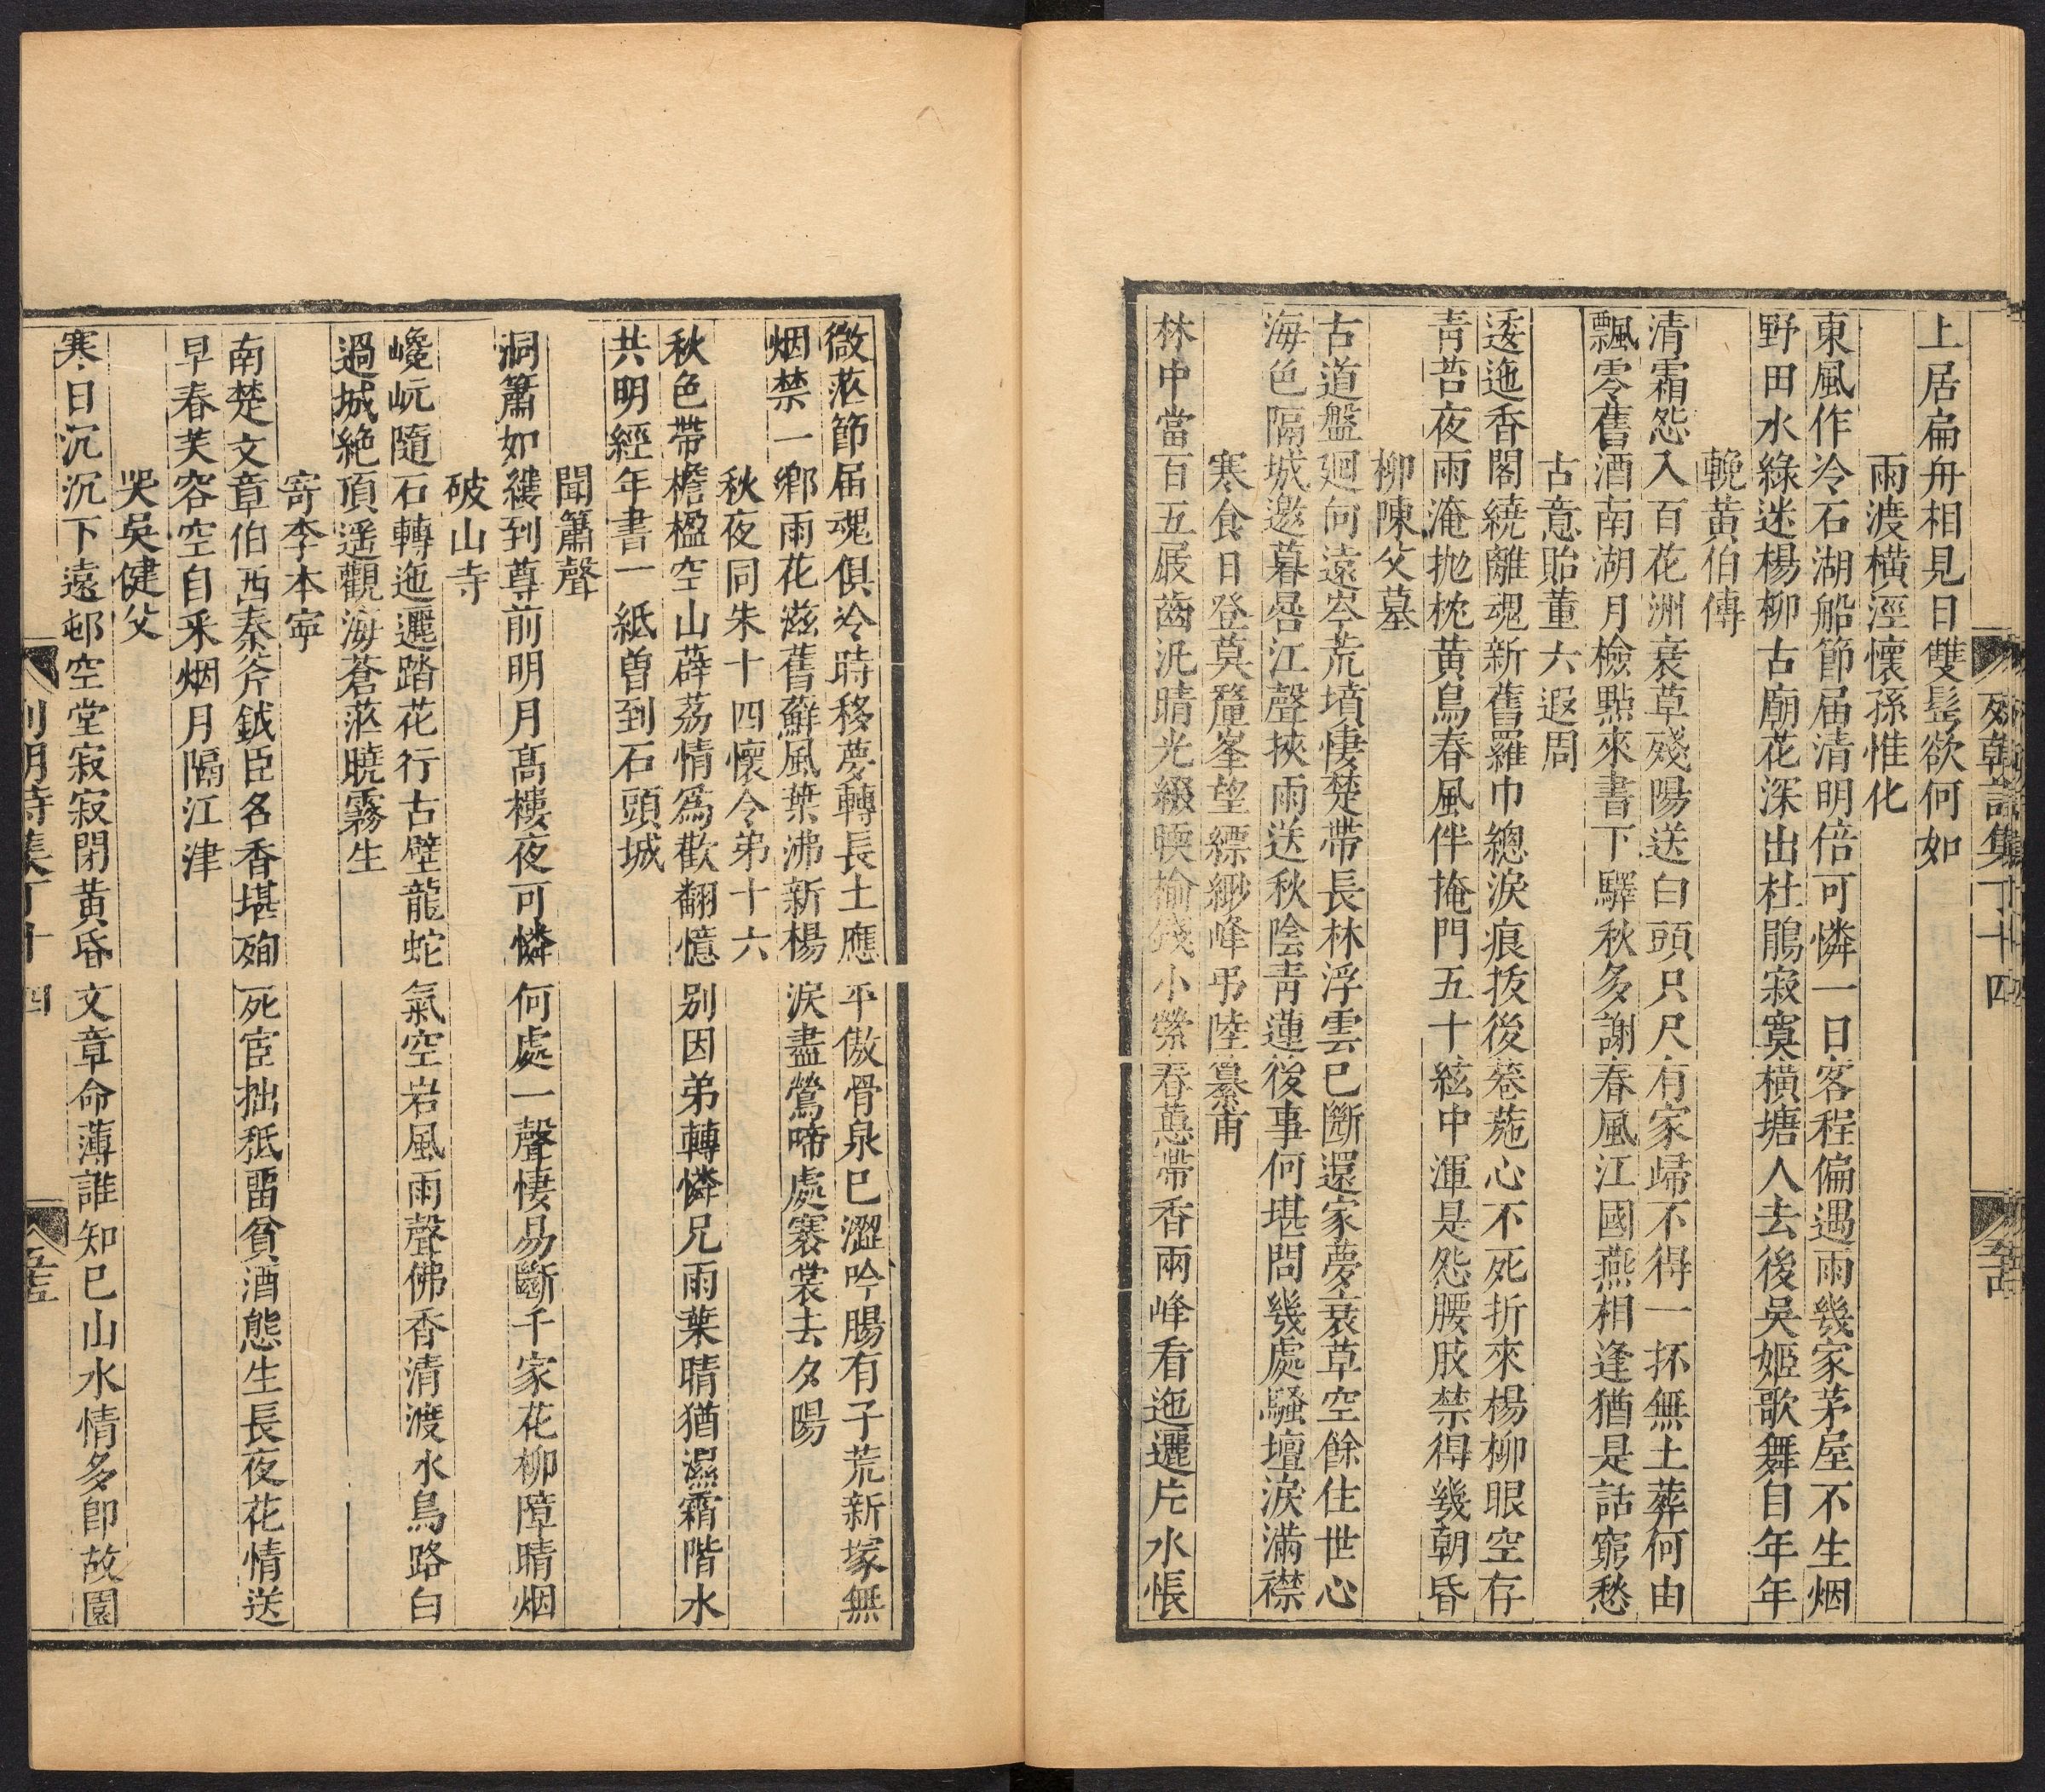 列朝詩集丁十四
上居扁舟相見日雙髩欲何如
雨渡橫涇懷孫惟化
東風作冷石湖船節届清明倍可憐一日客程偏遇雨幾家茅屋不生烟
野田水綠迷楊柳古廟花深出杜鵑寂寞橫塘人去後吳姬歌舞自年年
輓黃伯傳
清霜怨入百花洲衰草殘陽送白頭只尺有家歸不得一抔無土葬何由
飄零舊酒南湖月檢點來書下驛秋多謝春風江國燕相逢猶是話窮愁
古意貽董六遐周
逶迤香閣繞離魂新舊羅巾總淚痕拔後菤葹心不死折來楊柳眼空存
青苔夜雨淹抛枕黃鳥春風伴掩門五十絃中渾是怨腰肢禁得幾朝昏
柳陳父墓
古道盤廻向遠岑荒墳悽楚帶長林浮雲已斷還家夢衰草空餘住世心
海色隔城邀暮晷江聲挾雨送秋陰青蓮後事何堪問幾處騷壇淚滿襟
寒食日登莫釐峯望縹緲峰弔陸纂甫
林中當百五屐齒汎晴光綴䁔榆錢小縈春蕙帶香兩峰看迤邐片水悵
微茫節届魂俱冷時移夢轉長土應平傲骨泉已澀吟腸有子荒新塚無
烟禁一鄉雨花滋舊蘚風葉沸新楊淚盡鶯啼處褰裳去夕陽
秋夜同朱十四懷令弟十六
秋色帶檐楹空山薜荔情爲歡翻憶别因弟轉憐兄雨葉晴猶濕霜階水
共明經年書一紙曽到石頭城
聞簫聲
洞簫如縷到尊前明月高樓夜可憐何處一聲悽易斷千家花柳障晴烟
破山寺
巉岏隨石轉迤邐踏花行古壁龍蛇氣空岩風雨聲佛香清渡水鳥路白
過城絶頂遥觀海蒼茫曉霧生
寄李本寧
南楚文章伯西秦斧鉞臣名香堪殉死宦拙秪畱貧酒態生長夜花情送
早春芙容空自采烟月隔江津
哭吳健父
寒日沉沉下遠邨空堂寂寂閉黃昏文章命薄誰知已山水情多卽故園
列朝詩集丁十四